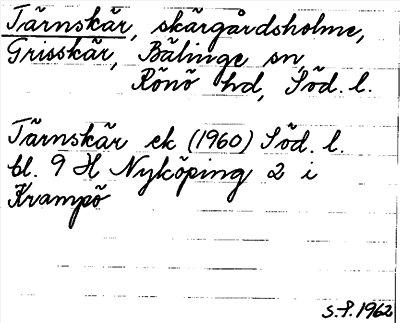 Tärnskär, skärgårdsholme,
Grisskär, Bälinge sn
Rönö hd, Söd. l.
Tärnskär ek (1960) Söd. l.
bl. 9 H Nyköping 2 i
Krampö
S.P. 1962